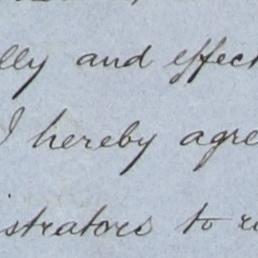 lly and effect
I hereby agre
istrators to r